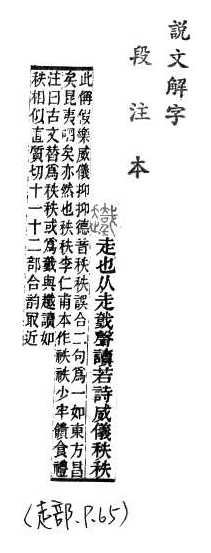 說文解字
段注本
走也从走𢧤聲讀若詩威儀秩秩
此偁假樂威儀抑抑德音秩秩誤合二句爲一如東方昌
矣昆夷呬矣亦然也秩秩李仁甫本作袟袟少牢饋食禮
注曰古文替爲秩秩或爲臷臷與趩讀如
秩相似直質切十一十二部合韵取近
(走部.P.65)